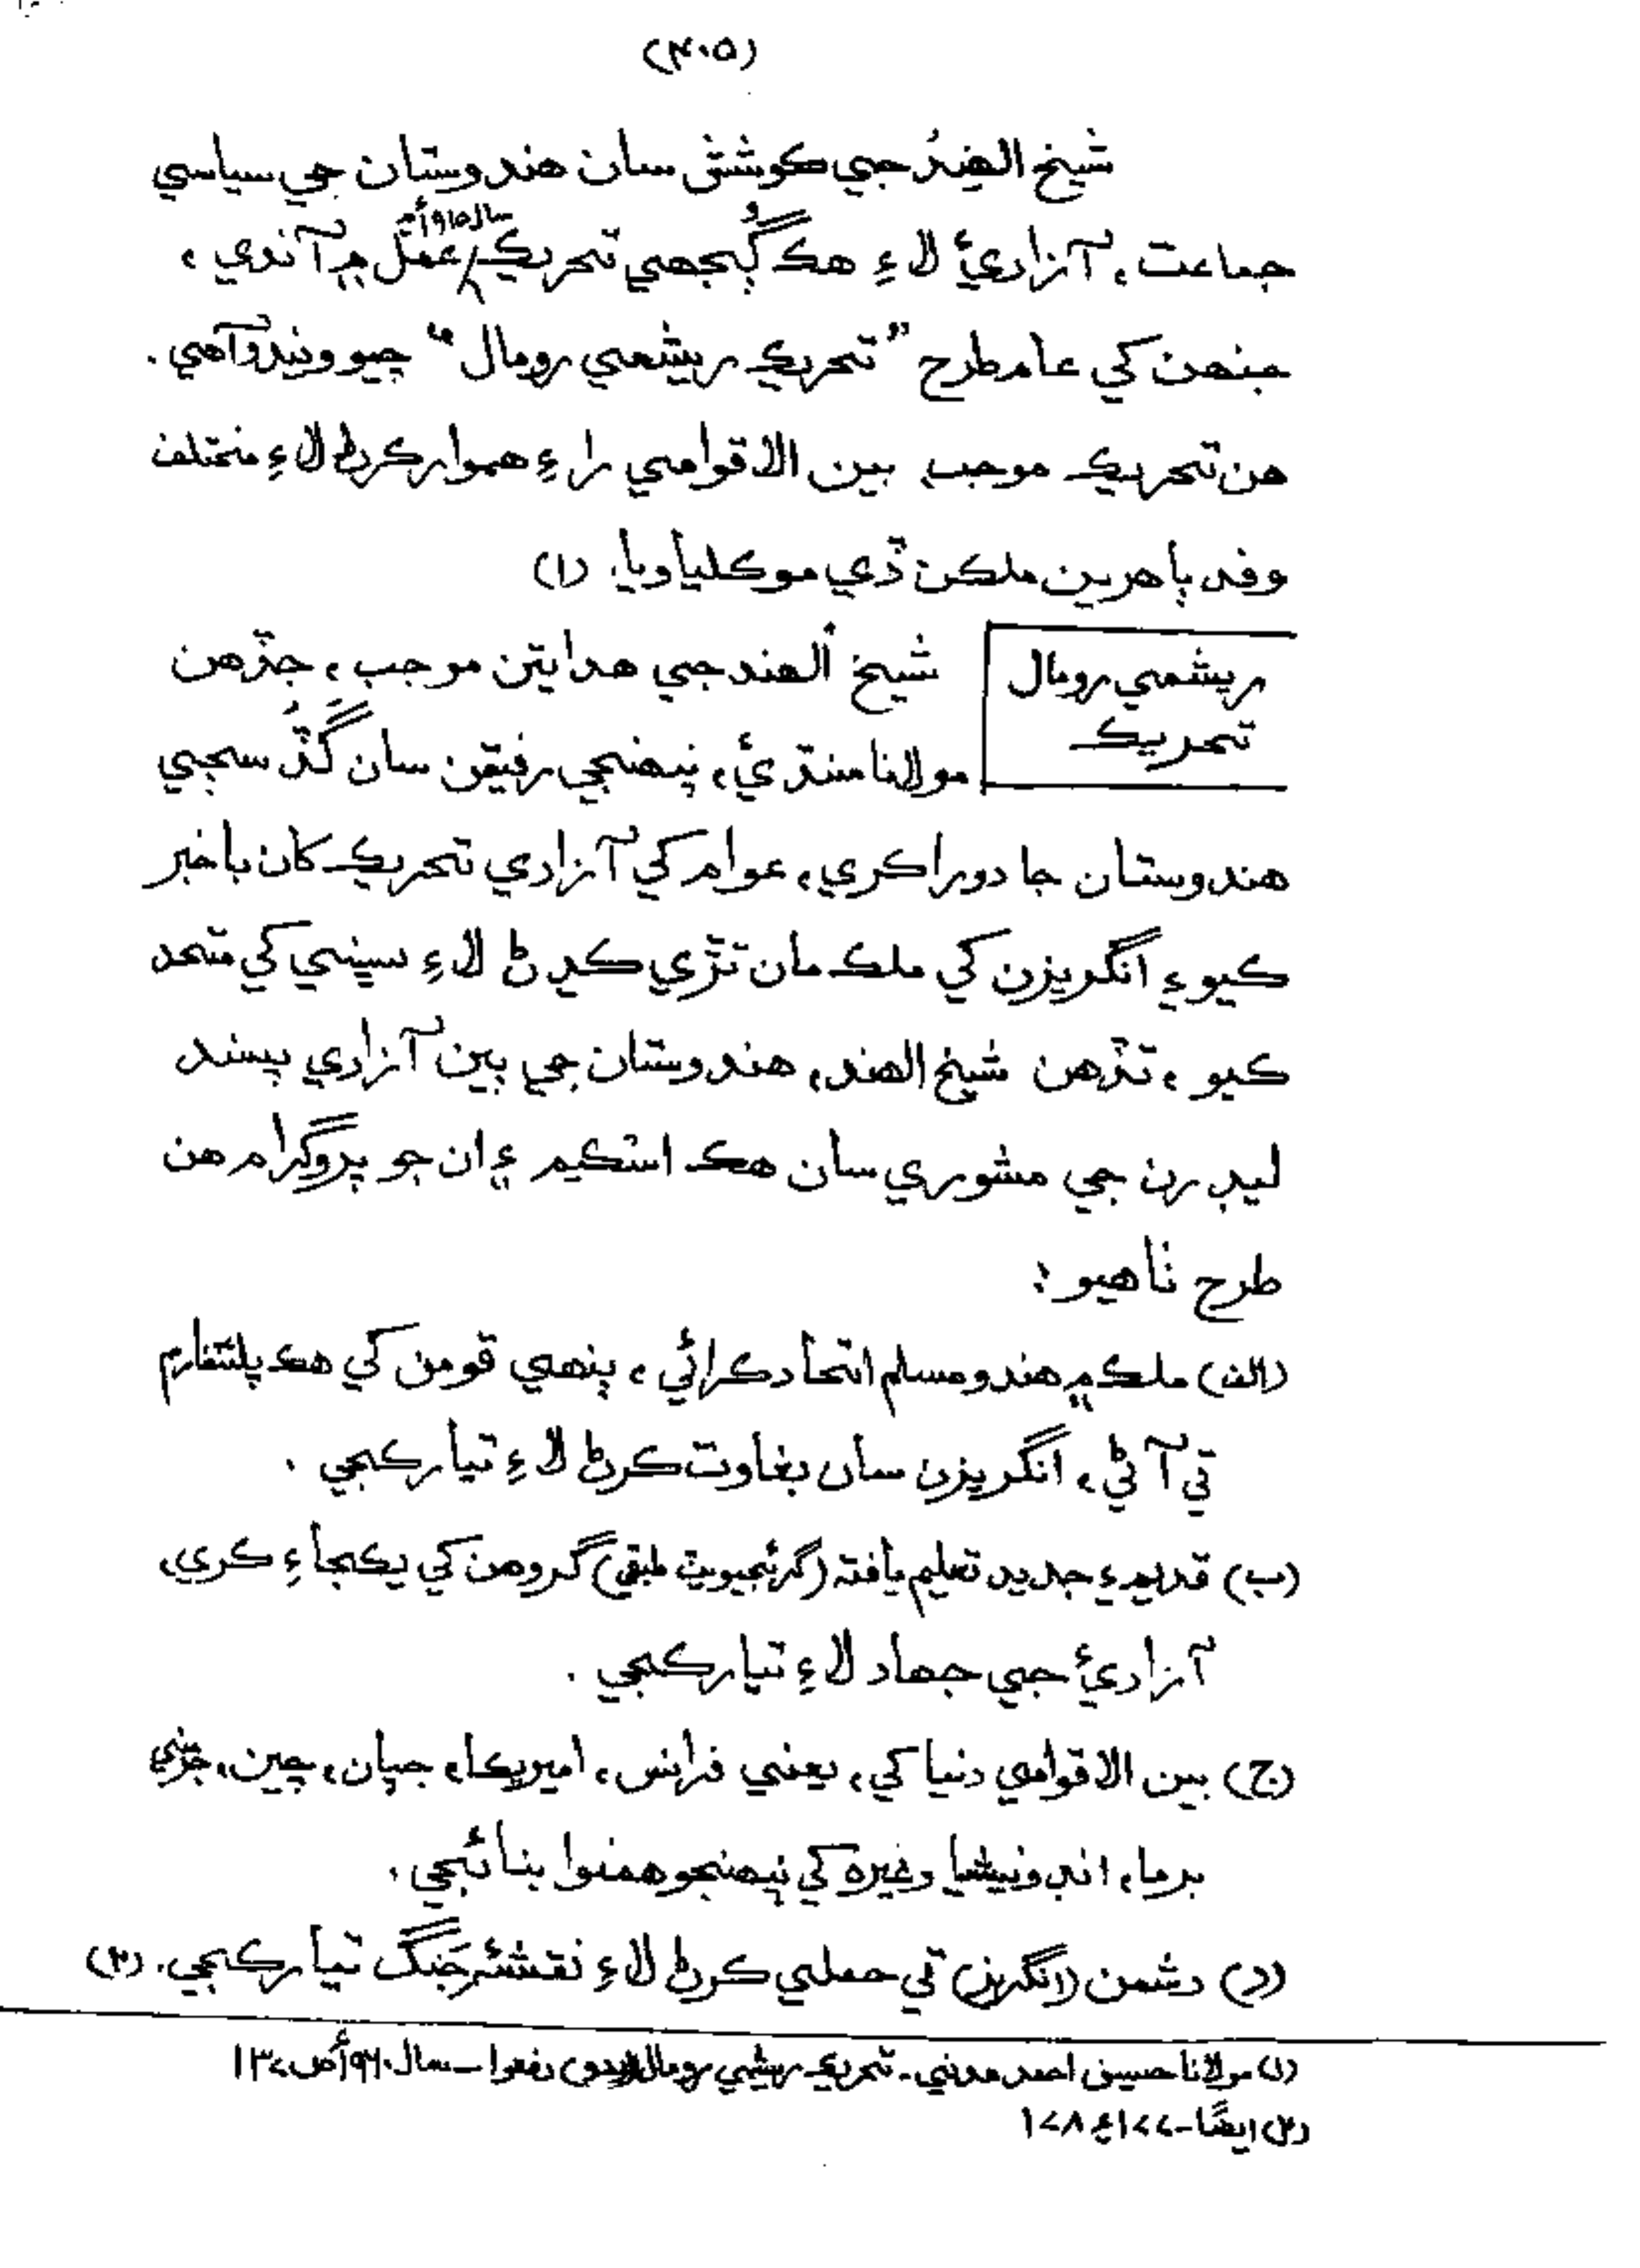 (۴۰۵)
شيخ الهندؒ جي ڪوشش سان هندوستان جي سياسي
جماعت، آزاديءَ لاءِ هڪ ڳُجهي تحريڪ سال ۱۹۱۵ع ۾ عمل ۾ آندي،
جنهن کي عام طرح ”تحريڪ ريشمي رومال“ چيو ويندو آهي.
هن تحريڪ موجب بين الاقوامي راءِ هموار ڪرڻ لاءِ مختلف
وفد ٻاهرين ملڪن ڏي موڪليا ويا. (۱)
ريشمي رومال
تحريڪ
شيخ الهند جي هدايتن موجب، جڏهن
مولانا سنڌيءَ، پنهنجي رفيقن سان گڏ سڄي
هندوستان جا دورا ڪري، عوام کي آزادي تحريڪ کان باخبر
ڪيو ۽ انگريزن کي ملڪ مان تڙي ڪڍڻ لاءِ سڀني کي متحد
ڪيو، تڏهن شيخ الهند، هندوستان جي ٻين آزادي پسند
ليڊرن جي مشوري سان هڪ اسڪيم ۽ ان جو پروگرام هن
طرح ٺاهيو:
(الف) ملڪ ۾ هندو مسلم اتحاد ڪرائي، ٻنهي قومن کي هڪ پليٽفارم
تي آڻي، انگريزن سان بغاوت ڪرڻ لاءِ تيار ڪجي.
(ب) قديم ۽ جديد تعليم يافته (گرئجيويٽ طبقي) گروهن کي يڪجاءِ ڪري،
آزاديءَ جي جهاد لاءِ تيار ڪجي.
(ج) بين الاقوامي دنيا کي، يعني فرانس، امريڪا، جپان، چين، جرمني
برما، انڊونيشيا وغيره کي پنهنجو همنوا بنائجي.
(د) دشمن (انگريز) تي حملي ڪرڻ لاءِ نقشئہ جَنگ تيار ڪجي. (۲)
(۱) مولانا حسين احمد مدني - تحريڪ ريشمي رومال (اردو) - سال ۱۹۶۰ع ص ۱۳۷
(۲) ايضًا - ۱۷۷ ۽ ۱۷۸